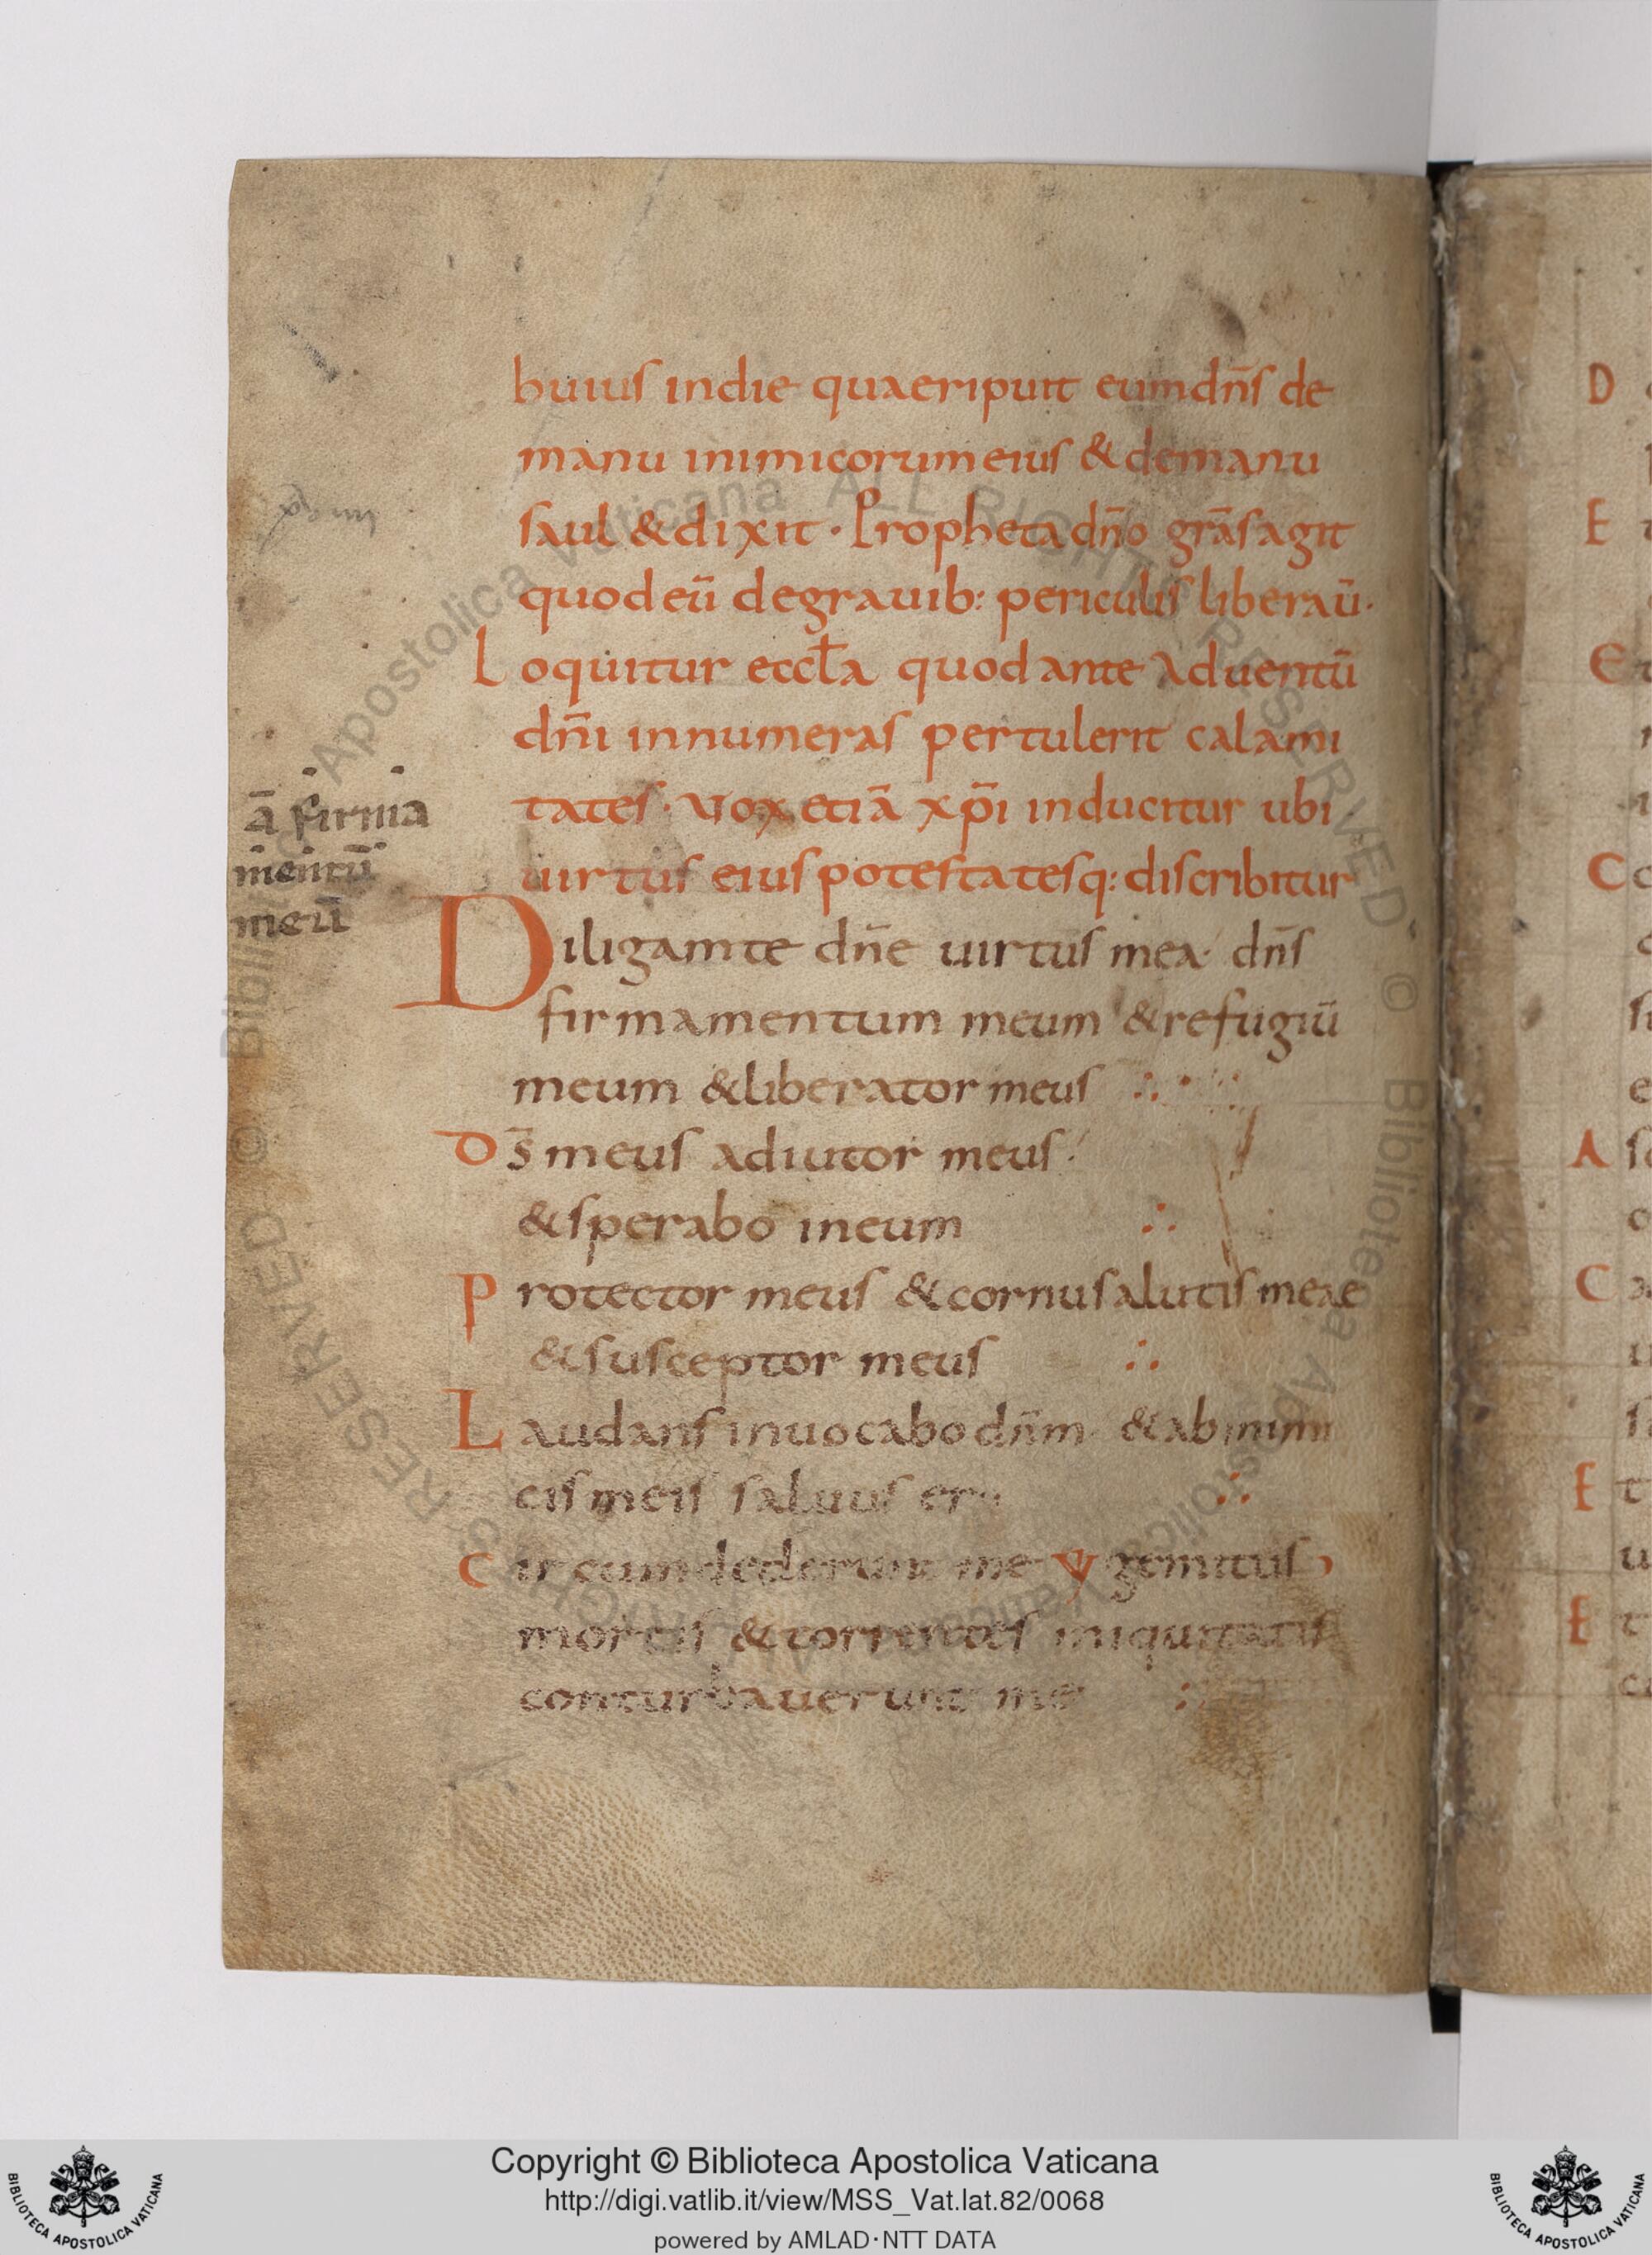 huius indie quaeripuit eumdn̄s de
manu inimicorumeius & demanu
saul & dixit · Propheta dn̄o grās agit
quodeū degrauib: periculis liberaū·
Loquitur eccl̄a quod ante aduentū
dn̄i innumeras pertulerit calami
tates · vox etiā xp̄i inducitur ubi
uirtus eius potestatesq: discribitur
ā firma
mentū
meū
Diligamte dn̄e uirtus mea· dn̄s
firmamentum meum & refugiū
meum & liberator meus ∴
Ds̄ meus adiutor meus·
& sperabo ineum ∴
Protector meus & cornu salutis meae
& susceptor meus ∴
Laudans inuocabo dn̄m & ab inimi
cis meis saluus ero ∴
Circumdederunt me gemitus
mortis & torrentes iniquitatis
conturbauerunt me :
D
E
E
C
A
C
E
E
Copyright © Biblioteca Apostolica Vaticana
http://digi.vatlib.it/view/MSS_Vat.lat.82/0068
powered by AMLAD·NTT DATA
BIBLIOTECA APOSTOLICA VATICANA
BIBLIOTECA APOSTOLICA VATICANA